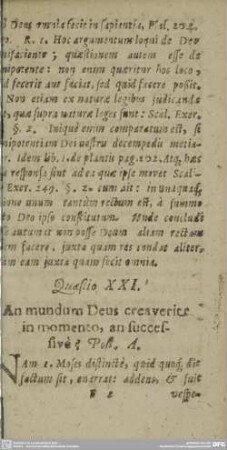 Deus omnia fecit in sapientia. Psal. 104.
R. 1. Hoc argumentum loqui de Deo
faciente; quæstionem autem esse de
nipotente: non enim quæritur hoc loco,
d fecerit aut faciat, sed quid facere possit.
Non etiam ex naturæ legibus judicanda
quæ supra naturæ leges sunt: Scal. Exer.
§. 2. Iniquè enim comparatum est, si
nipotentiam Dei nostro decempeda metia-
Idem lib. 1. de plantis pag. 102. Atq, hæc
responsio sint ad ea quæ ipse movet Scal-
Exer. 249. §. 2. cum ait: in unaquaq,
ne unum tantùm rectum est, à summo
Deo ipso constitutum. Unde concludi
autumet non posse Deum aliam rectam
facere, juxta quam res condat aliter,
eam juxta quam fecit omnia.
Quæstio XXI.
An mundum Deus creaverit
in momento, an succes-
sivè? Pos. A.
NAm 1. Moses distinctè, quid quoq, die
factum sit, enerrat: addens, & fuit
vespe-